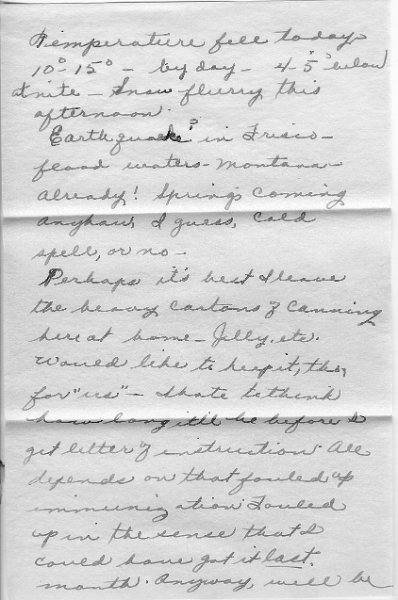 Temperature fell today
10°-15° - by day - 4°5° below
at nite - Snow flurry this
afternoon.
Earthquake? in Frisco -
flood waters - Montana
already! Springs coming
anyhow, I guess, cold
spell, or no -
Perhaps it's best I leave
the heavy cartons of canning
here at home - Jelly, etc.
Would like to keep it, tho,
for "us" - I hate to think
how long it'll be before I
get letter of instruction. All
depends on that fouled up
immunization. Fouled
up in the sense that I
could have got it last
month. Anyway, will be